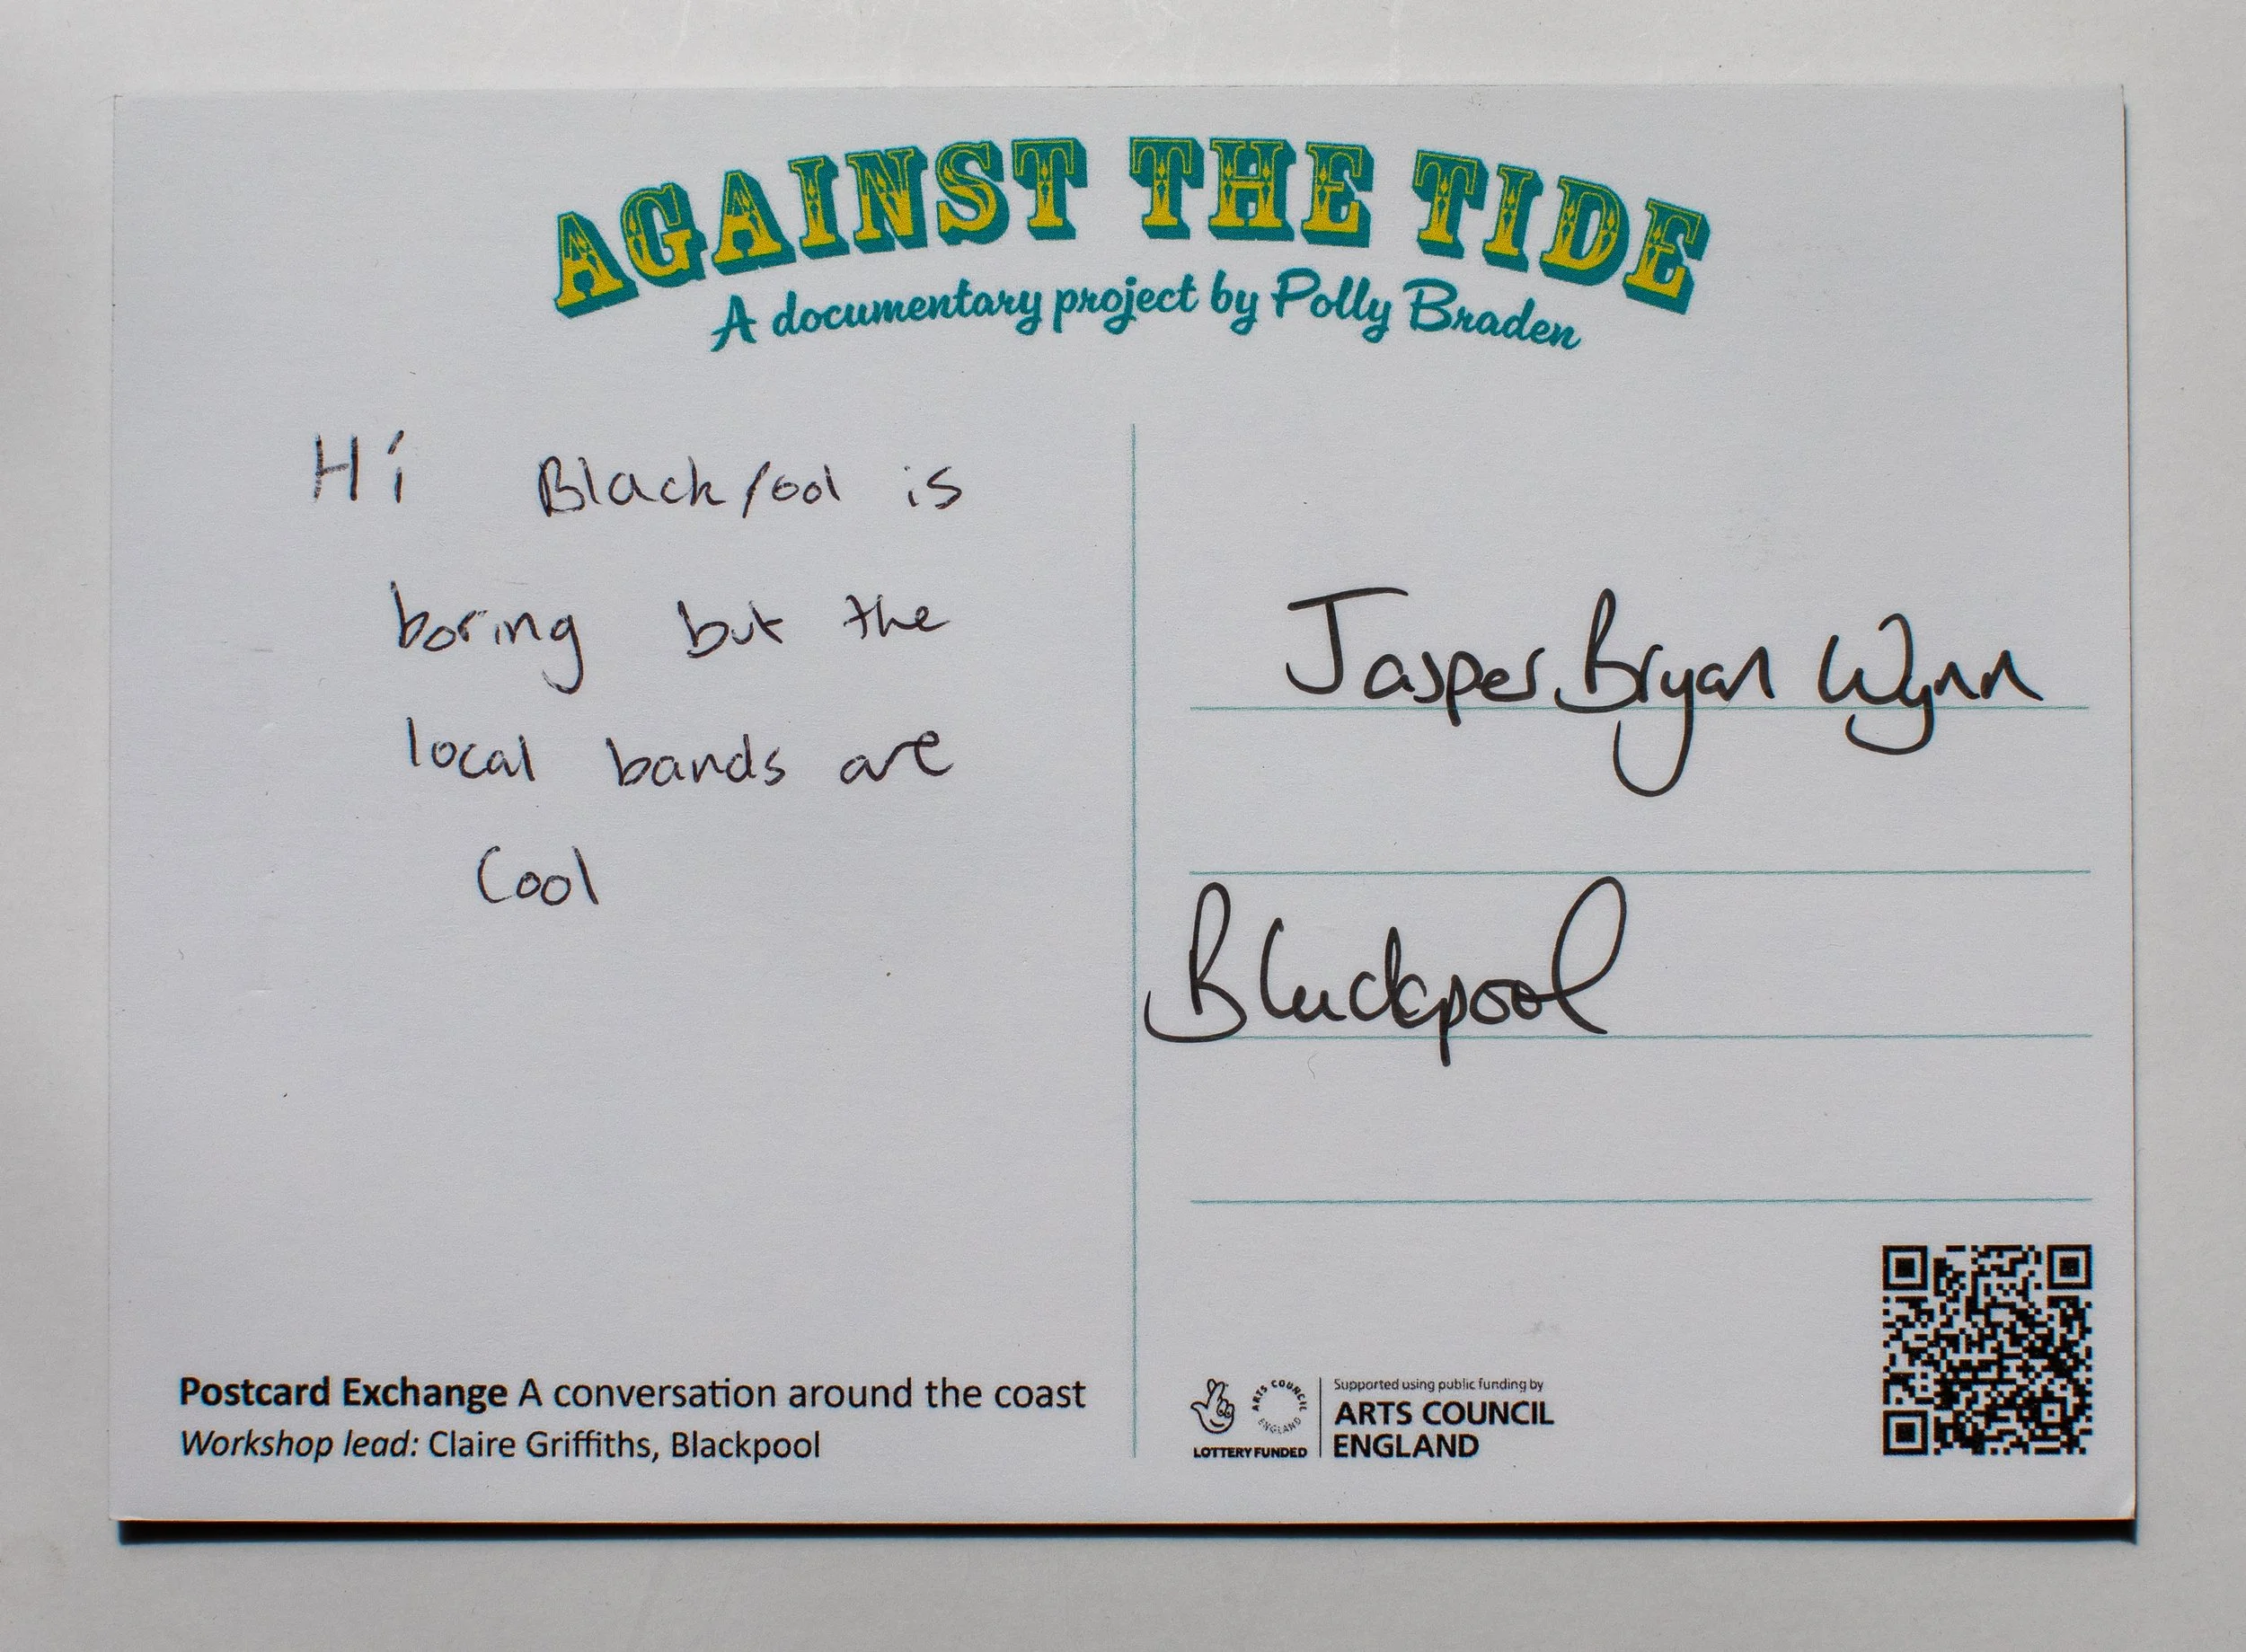 AGAINST THE TIDE
A documentary project by Polly Braden
Hi Blackpool is
boring but the
local bands are
Cool
Jasper Bryan Wynn
Blackpool
Postcard Exchange A conversation around the coast
Workshop lead: Claire Griffiths, Blackpool
ARTS COUNCIL ENGLAND
LOTTERY FUNDED
Supported using public funding by
ARTS COUNCIL
ENGLAND